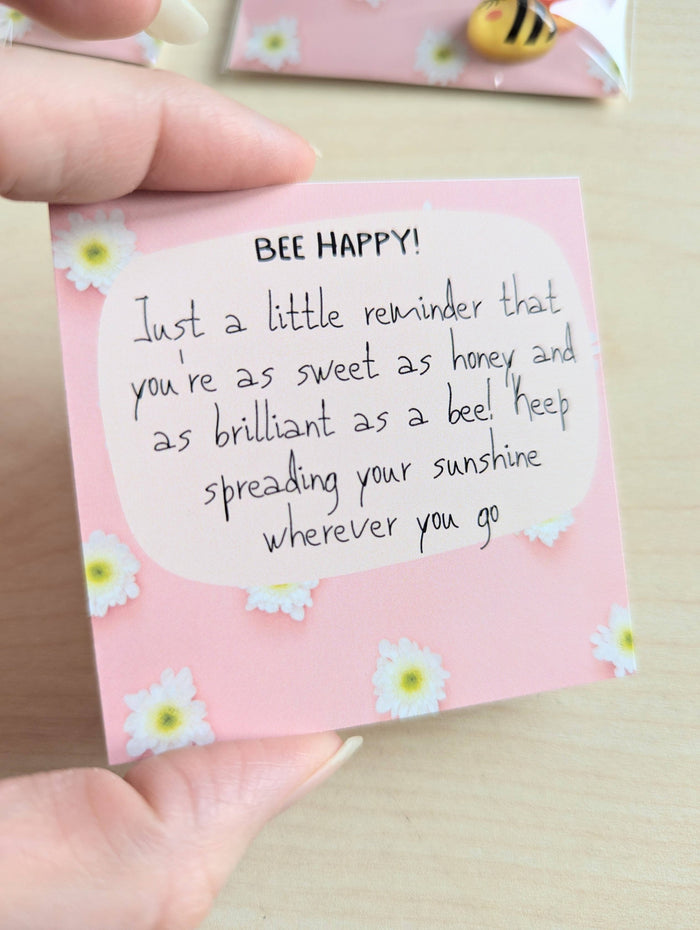 BEE HAPPY!
Just a little reminder that
you're as sweet as honey and
as brilliant as a bee! Keep
spreading your sunshine
wherever you go